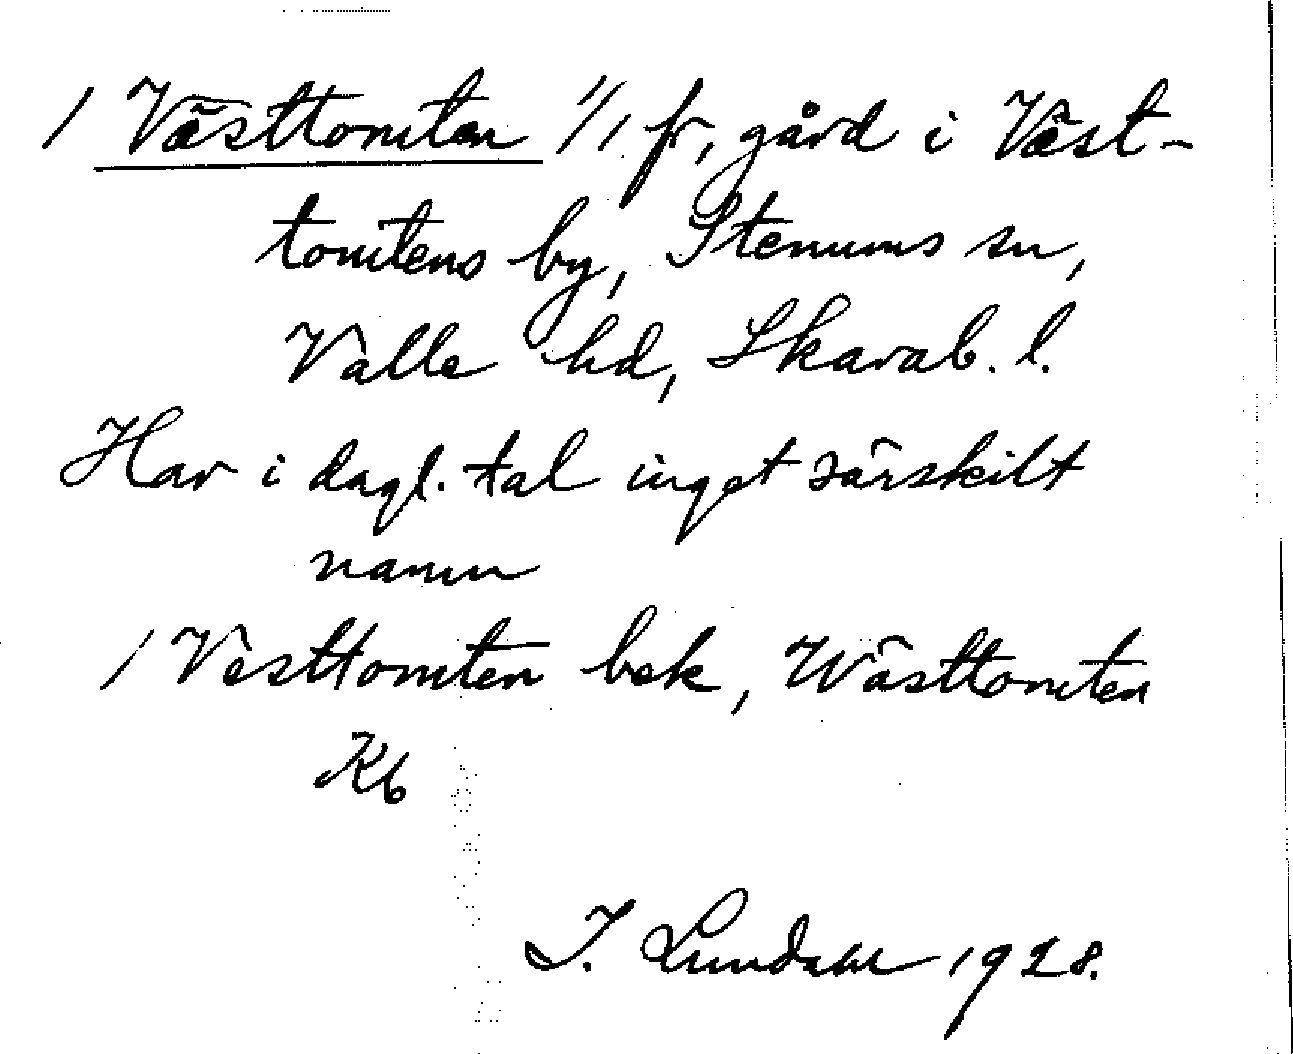 / Västtomten 1/1 fr, gård i Väst-
tomtens by, Stenums sn,
Valle hd, Skarab. l.
Har i dagl. tal inget särskilt
namn
/ Västtomten bek, Wästtomten
Kb
I. Lundahl 1928.